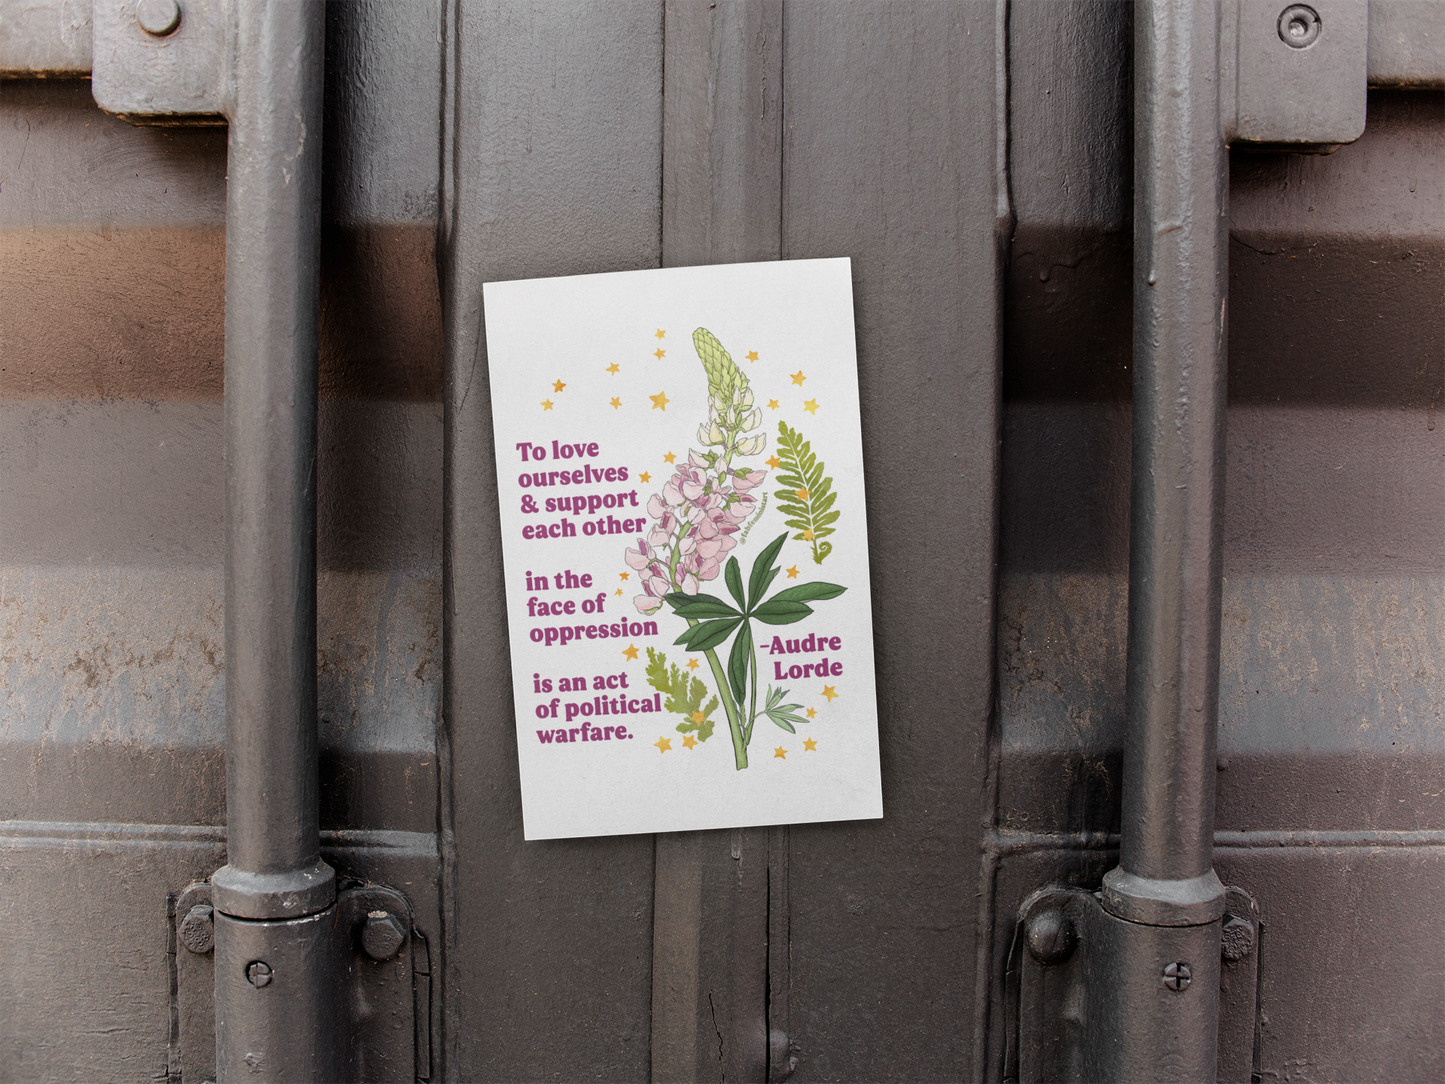 To love
ourselves
& support
each other
in the
face of
oppression
is an act
of political
warfare.
-Audre
Lorde
@fabfeministart